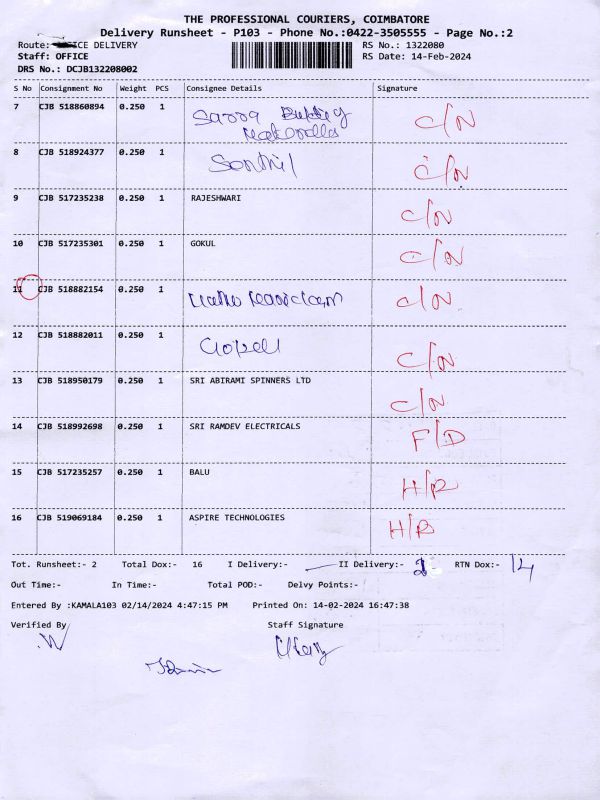 THE PROFESSIONAL COURIERS, COIMBATORE
Delivery Runsheet - P103 - Phone No.:0422-3505555 - Page No.:2
Route: OFFICE DELIVERY RS No.: 1322080
Staff: OFFICE RS Date: 14-Feb-2024
DRS No.: DCJB132208002
S No Consignment No Weight PCS Consignee Details Signature
7 CJB 518860894 0.250 1 C/N
8 CJB 518924377 0.250 1 Senthil C/N
9 CJB 517235238 0.250 1 RAJESHWARI C/N
10 CJB 517235301 0.250 1 GOKUL C/N
11 CJB 518882154 0.250 1 C/N
12 CJB 518882011 0.250 1 C/N
13 CJB 518950179 0.250 1 SRI ABIRAMI SPINNERS LTD C/N
14 CJB 518992698 0.250 1 SRI RAMDEV ELECTRICALS F/D
15 CJB 517235257 0.250 1 BALU H/R
16 CJB 519069184 0.250 1 ASPIRE TECHNOLOGIES H/R
Tot. Runsheet:- 2 Total Dox:- 16 I Delivery:- II Delivery:- 2 RTN Dox:- 14
Out Time:- In Time:- Total POD:- Delvy Points:-
Entered By :KAMALA103 02/14/2024 4:47:15 PM Printed On: 14-02-2024 16:47:38
Verified By Staff Signature